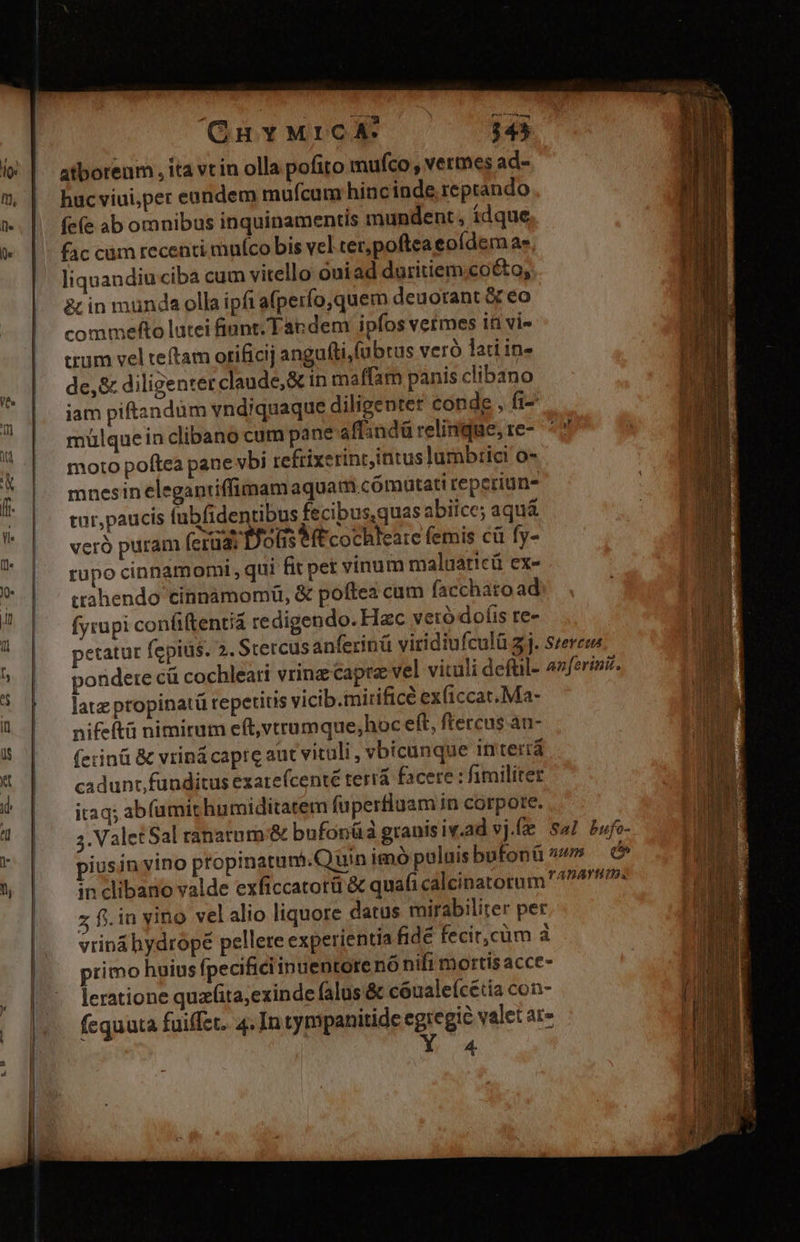 CHYMICA. 343
arboreum, ita vt in olla posito musco, vermes ad-
huc viui, per eundem muscum hinc inde reptando
sese ab omnibus inquinamentis mundent, idque
fac cum recenti musco bis vel ter, postea eosdem as-
liquandiu ciba cum vitello oui ad duritiem cocto,
& in munda olla ipsi asperso, quem deuorant & eo
commesto lutei fiunt. Tandem ipsos vermes in vi-
trum vel testam orificij angusti, subtus verò lati in-
de, & diligenter claude, & in massam panis clibano
iam pistandùm vndiquaque diligenter conde, si-
mùlque in clibano cum pane assandū relinque, re-
moto postea pane vbi refrixerint, intus lumbrici o-
mnes in elegantissimam aquam cómutati reperiun-
tur, paucis subsidentibus fecibus, quas abiice; aquā
verò puram serua: Dosis est cochleare semis cū sy-
rupo cinnamomi, qui fit per vinum maluaticū ex-
trahendo cinnamomū, & postea cum saccharo ad
syrupi consistentiā redigendo. Hæc verò dosis re-
petatur sepius. 2. Stercus anserinū viridiusculū ʒ j. Stercus
pondere cū cochleari vrinæ capræ vel vituli destil- anserinū.
latæ propinatū repetitis vicib. mirificè exsiccat. Ma-
nifestū nimirum est, vtrumque, hoc est, stercus an-
serinū & vrinā capre aut vituli, vbicunque in terrā
cadunt, funditus exarescentē terrā facere: similiter
itaq; absumit humiditatem superfluam in corpore.
3. Valet Sal ranarum & bufonū à granis iv. ad vj. sæ Sal bufo-
pius in vino propinatum. Quin imò puluis bufonū num &
in clibano valde exsiccatorū & quasi calcinatorum ranarum.
ʒ ß. in vino vel alio liquore datus mirabiliter per
vrinā hydropē pellere experientia fidē fecit, cùm à
primo huius specifici inuentore nó nisi mortis acce-
leratione quæsita, exinde salus & cóualescētia con-
sequuta fuisset. 4. In tympanitide egregiè valet ar-
Y 4